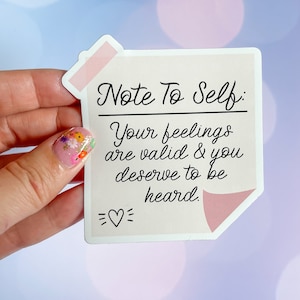 Note To Self:
Your feelings
are valid & you
deserve to be
heard.